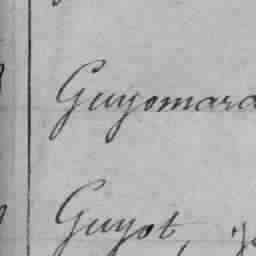 Guyomard
Guyot,